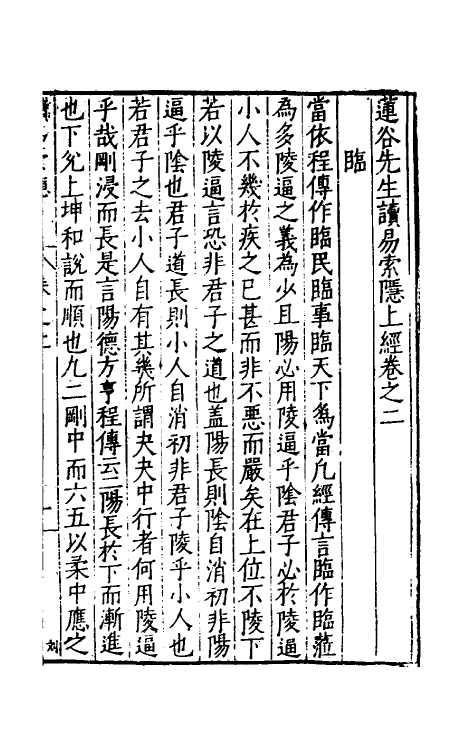 蓮谷先生讀易索隱上經卷之二
臨
當依程傳作臨民臨事臨天下爲當凡經傳言臨作臨蒞
為多陵逼之義為少且陽必用陵逼乎陰君子必於陵逼
小人不幾於疾之已甚而非不悪而嚴矣在上位不陵下
若以陵逼言恐非君子之道也盖陽長則陰自消初非陽
逼乎陰也君子道長則小人自消初非君子陵乎小人也
若君子之去小人自有其幾所謂夬夬中行者何用陵逼
乎哉剛浸而長是言陽德方亨程傳云二陽長於下而漸進
也下兊上坤和說而順也九二剛中而六五以柔中應之